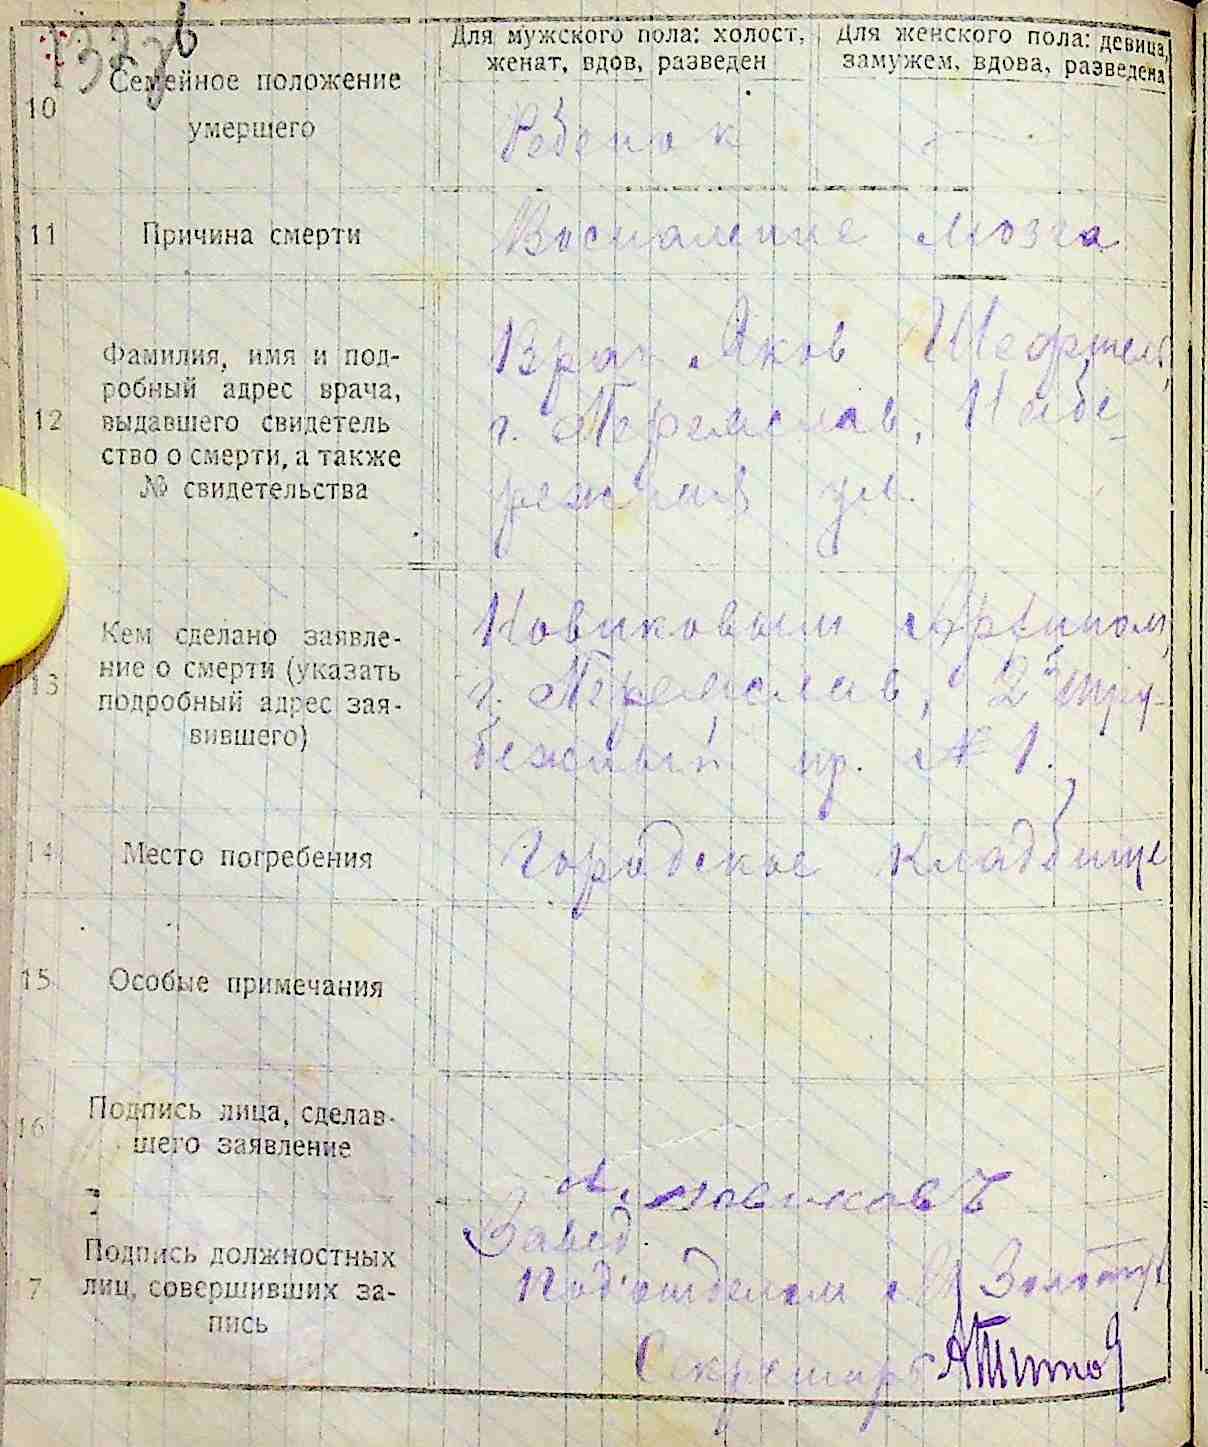 Для мужского пола: холост, женат, вдов, разведен
Для женского пола: девица, замужем, вдова, разведена
10
Семейное положение
умершего
Ребенок
11
Причина смерти
Воспаление мозга
12
Фамилия, имя и под-
робный адрес врача,
выдавшего свидетель
ство о смерти, а также
№ свидетельства
Врач Яков Шефтель,
г. Переяслав, Набе-
режная ул.
13
Кем сделано заявле-
ние о смерти (указать
подробный адрес зая-
вившего)
Новиковым
г. Переяслав, 2й Тру-
бежный пр. № 1.
14
Место погребения
Городское кладбище
15
Особые примечания
16
Подпись лица, сделав-
шего заявление
А. Новиковъ
17
Подпись должностных
лиц, совершивших за-
пись
Завед.
Под'отделом
Секретарь А Титов